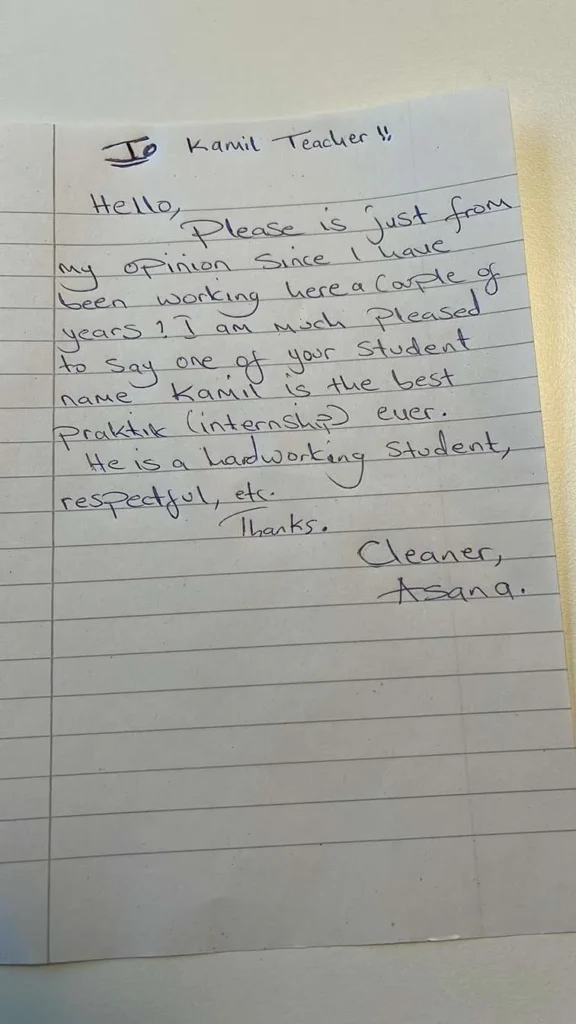 To Kamil Teacher !!
Hello,
Please is just from
my opinion Since I have
been working here a Couple of
years! I am much Pleased
to say one of your Student
name Kamil is the best
Praktik (internship) ever.
He is a hardworking Student,
respectful, etc.
Thanks.
Cleaner,
Asana.